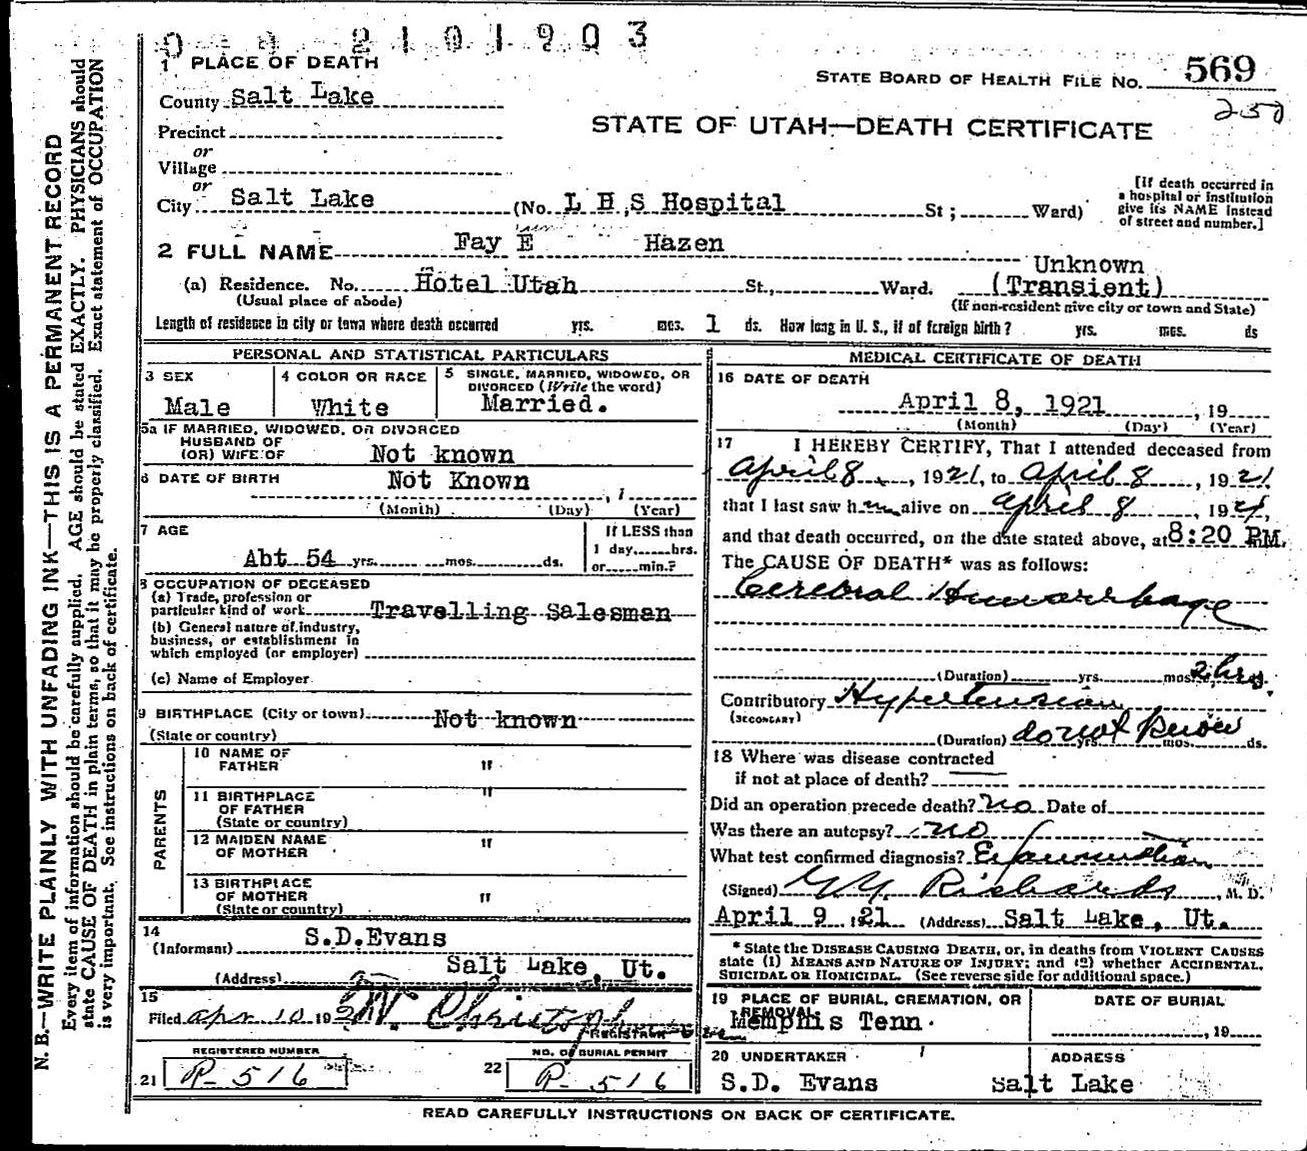 2101903
1 PLACE OF DEATH
STATE BOARD OF HEALTH FILE NO. 569
County Salt Lake
250
Precinct
STATE OF UTAH—DEATH CERTIFICATE
or
Village
or
City Salt Lake (No. L H S Hospital St; Ward)
[If death occurred in a hospital or institution give its NAME instead of street and number.]
2 FULL NAME Fay E Hazen
(a) Residence. No. Hotel Utah St., Ward. Unknown (Transient)
(Usual place of abode) (If non-resident give city or town and State)
Length of residence in city or town where death occurred yrs. mos. 1 ds. How long in U. S., if of foreign birth? yrs. mos. ds
PERSONAL AND STATISTICAL PARTICULARS
3 SEX
Male
4 COLOR OR RACE
White
5 SINGLE, MARRIED, WIDOWED, OR
DIVORCED (Write the word)
Married.
5a IF MARRIED, WIDOWED, OR DIVORCED
HUSBAND OF
(OR) WIFE OF Not known
6 DATE OF BIRTH Not Known
, 1
(Month) (Day) (Year)
7 AGE
Abt 54 yrs. mos. ds.
If LESS than
1 day, hrs.
or min.?
8 OCCUPATION OF DECEASED
(a) Trade, profession or
particular kind of work Travelling Salesman
(b) General nature of industry,
business, or establishment in
which employed (or employer)
(c) Name of Employer
9 BIRTHPLACE (City or town) Not known
(State or country)
PARENTS
10 NAME OF
FATHER "
11 BIRTHPLACE "
OF FATHER
(State or country)
12 MAIDEN NAME "
OF MOTHER
13 BIRTHPLACE
OF MOTHER "
(State or country)
14
(Informant) S.D.Evans
(Address) Salt Lake, Ut.
15
Filed Apr 10 192
REGISTRAR
REGISTERED NUMBER
21 R-516
NO. OF BURIAL PERMIT
22 R-516
MEDICAL CERTIFICATE OF DEATH
16 DATE OF DEATH
April 8, 1921 , 19
(Month) (Day) (Year)
17 I HEREBY CERTIFY, That I attended deceased from
April 8, 1921, to April 8, 1921
that I last saw him alive on April 8, 1921,
and that death occurred, on the date stated above, at 8:20 P.M.
The CAUSE OF DEATH* was as follows:
Cerebral Hemorrhage
(Duration) yrs. mos. 2 hrs.
Contributory Hypertension
(SECONDARY)
(Duration) do not know yrs. mos. ds.
18 Where was disease contracted
if not at place of death?
Did an operation precede death? no Date of
Was there an autopsy? no
What test confirmed diagnosis? Examination
(Signed) G G Richards, M. D.
April 9 , 21 (Address) Salt Lake, Ut.
* State the DISEASE CAUSING DEATH, or, in deaths from VIOLENT CAUSES
state (1) MEANS AND NATURE OF INJURY; and (2) whether ACCIDENTAL,
SUICIDAL OR HOMICIDAL. (See reverse side for additional space.)
19 PLACE OF BURIAL, CREMATION, OR
REMOVAL
Memphis Tenn.
DATE OF BURIAL
, 19
20 UNDERTAKER
S.D. Evans
ADDRESS
Salt Lake
READ CAREFULLY INSTRUCTIONS ON BACK OF CERTIFICATE.
N. B.—WRITE PLAINLY WITH UNFADING INK—THIS IS A PERMANENT RECORD
Every item of information should be carefully supplied. AGE should be stated EXACTLY. PHYSICIANS should
state CAUSE OF DEATH in plain terms, so that it may be properly classified. Exact statement of OCCUPATION
is very important. See instructions on back of certificate.